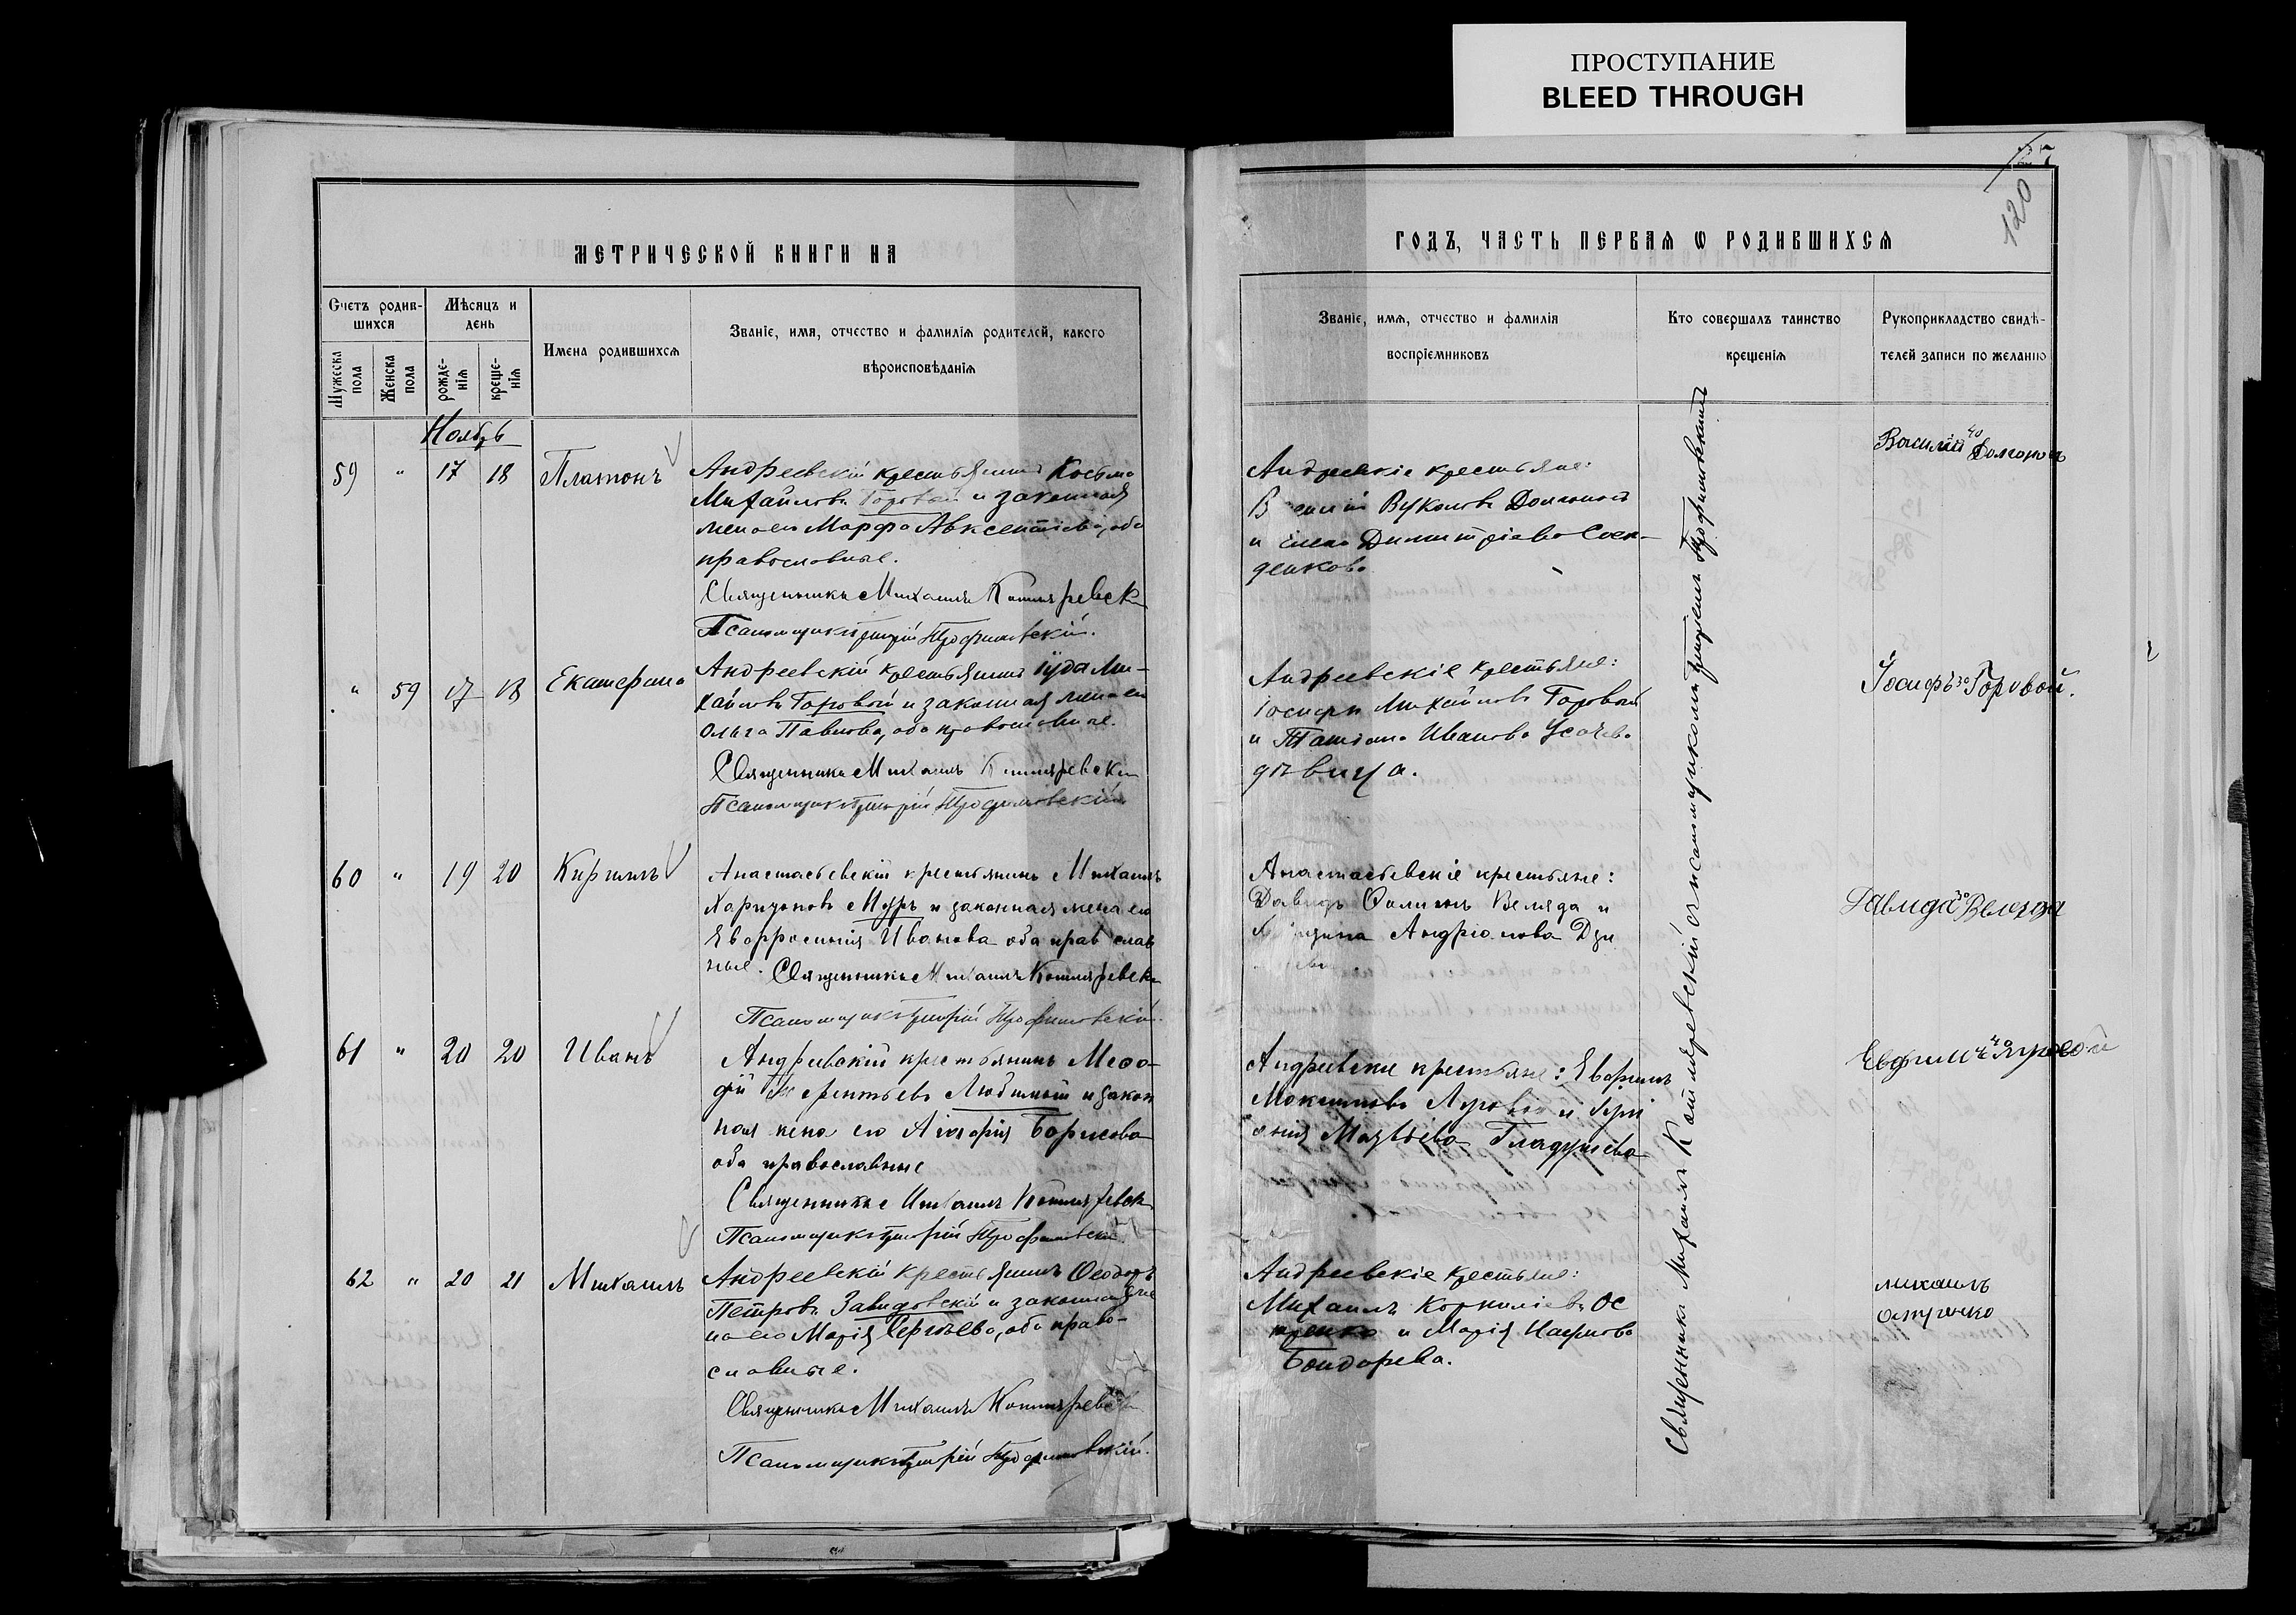 ПРОСТУПАНИЕ
BLEED THROUGH
120
МЕТРИЧЕСКОЙ КНИГИ НА
ГОДЪ, ЧАСТЬ ПЕРВАЯ Ѡ РОДИВШИХСЯ
Счетъ родив-
шихся
Мужеска
пола
Женска
пола
Мѣсяцъ и
день
рожде-
нія
креще-
нія
Имена родившихся
Званіе, имя, отчество и фамилія родителей, какого
вѣроисповѣданія
Званіе, имя, отчество и фамилія
воспріемниковъ
Кто совершалъ таинство
крещенія
Рукоприкладство свидѣ-
телей записи по желанію
Ноябрь
59 " 17 18 Платонъ
Андреевскій крестьянинъ Косьма
Михайловъ Горовой и законная
жена его Марфа Авксентіева, оба
православные.
Священникъ Михаилъ Котляревск
Псаломщикъ Григорій Трофимовскій.
Андреевскіе крестьяне:
Вуколовъ
и Димитріева
Василий
" 59 17 18 Екатерина
Андреевскій крестьянинъ Іуда Ми-
хайловъ Горовой и законная жена его
Ольга Павлова, оба православные.
Священникъ Михаилъ Котляревски
Псаломщикъ Григорій Трофимовскій
Андреевскіе крестьяне:
Іосифъ Михайловъ Горовой
и Татіана Иванова Усачева
дѣвица.
Іосифъ Горовой.
60 " 19 20 Кириллъ
Анастасьевскій крестьянинъ Михаилъ
Харитоновъ Муръ и законная жена его
Евфросинія Иванова оба православ
ные. Священникъ Михаилъ Котляревск
Псаломщикъ Григорій Трофимовскій
Анастасьевскіе крестьяне:
Давидъ Веляда и
Андріанова
Давида
61 " 20 20 Иванъ
Андреевскій крестьянинъ Меѳо-
дій Терентьевъ Любимый и закон
ная жена его Агафія Борисова
оба православные
Священникъ Михаилъ Котляревск
Псаломщикъ Григорій Трофимовскій
Андреевскіе крестьяне: Евфимъ
Максимовъ Яровой и
Матвѣева Гладушева
Евфимъ Яровой
62 " 20 21 Михаилъ
Андреевскій крестьянинъ Ѳеодоръ
Петровъ Завидовскій и законная же
на его Марія Сергѣева, оба право-
славные.
Священникъ Михаилъ Котляревск
Псаломщикъ Григорій Трофимовскій.
Андреевскіе крестьяне:
Михаилъ Корниліевъ Ос
тренко и Марія Наумова
Бондарева.
михаилъ
Остренко
Священникъ Михаилъ Котляревскій съ псаломщикомъ Григоріемъ Трофимовскимъ